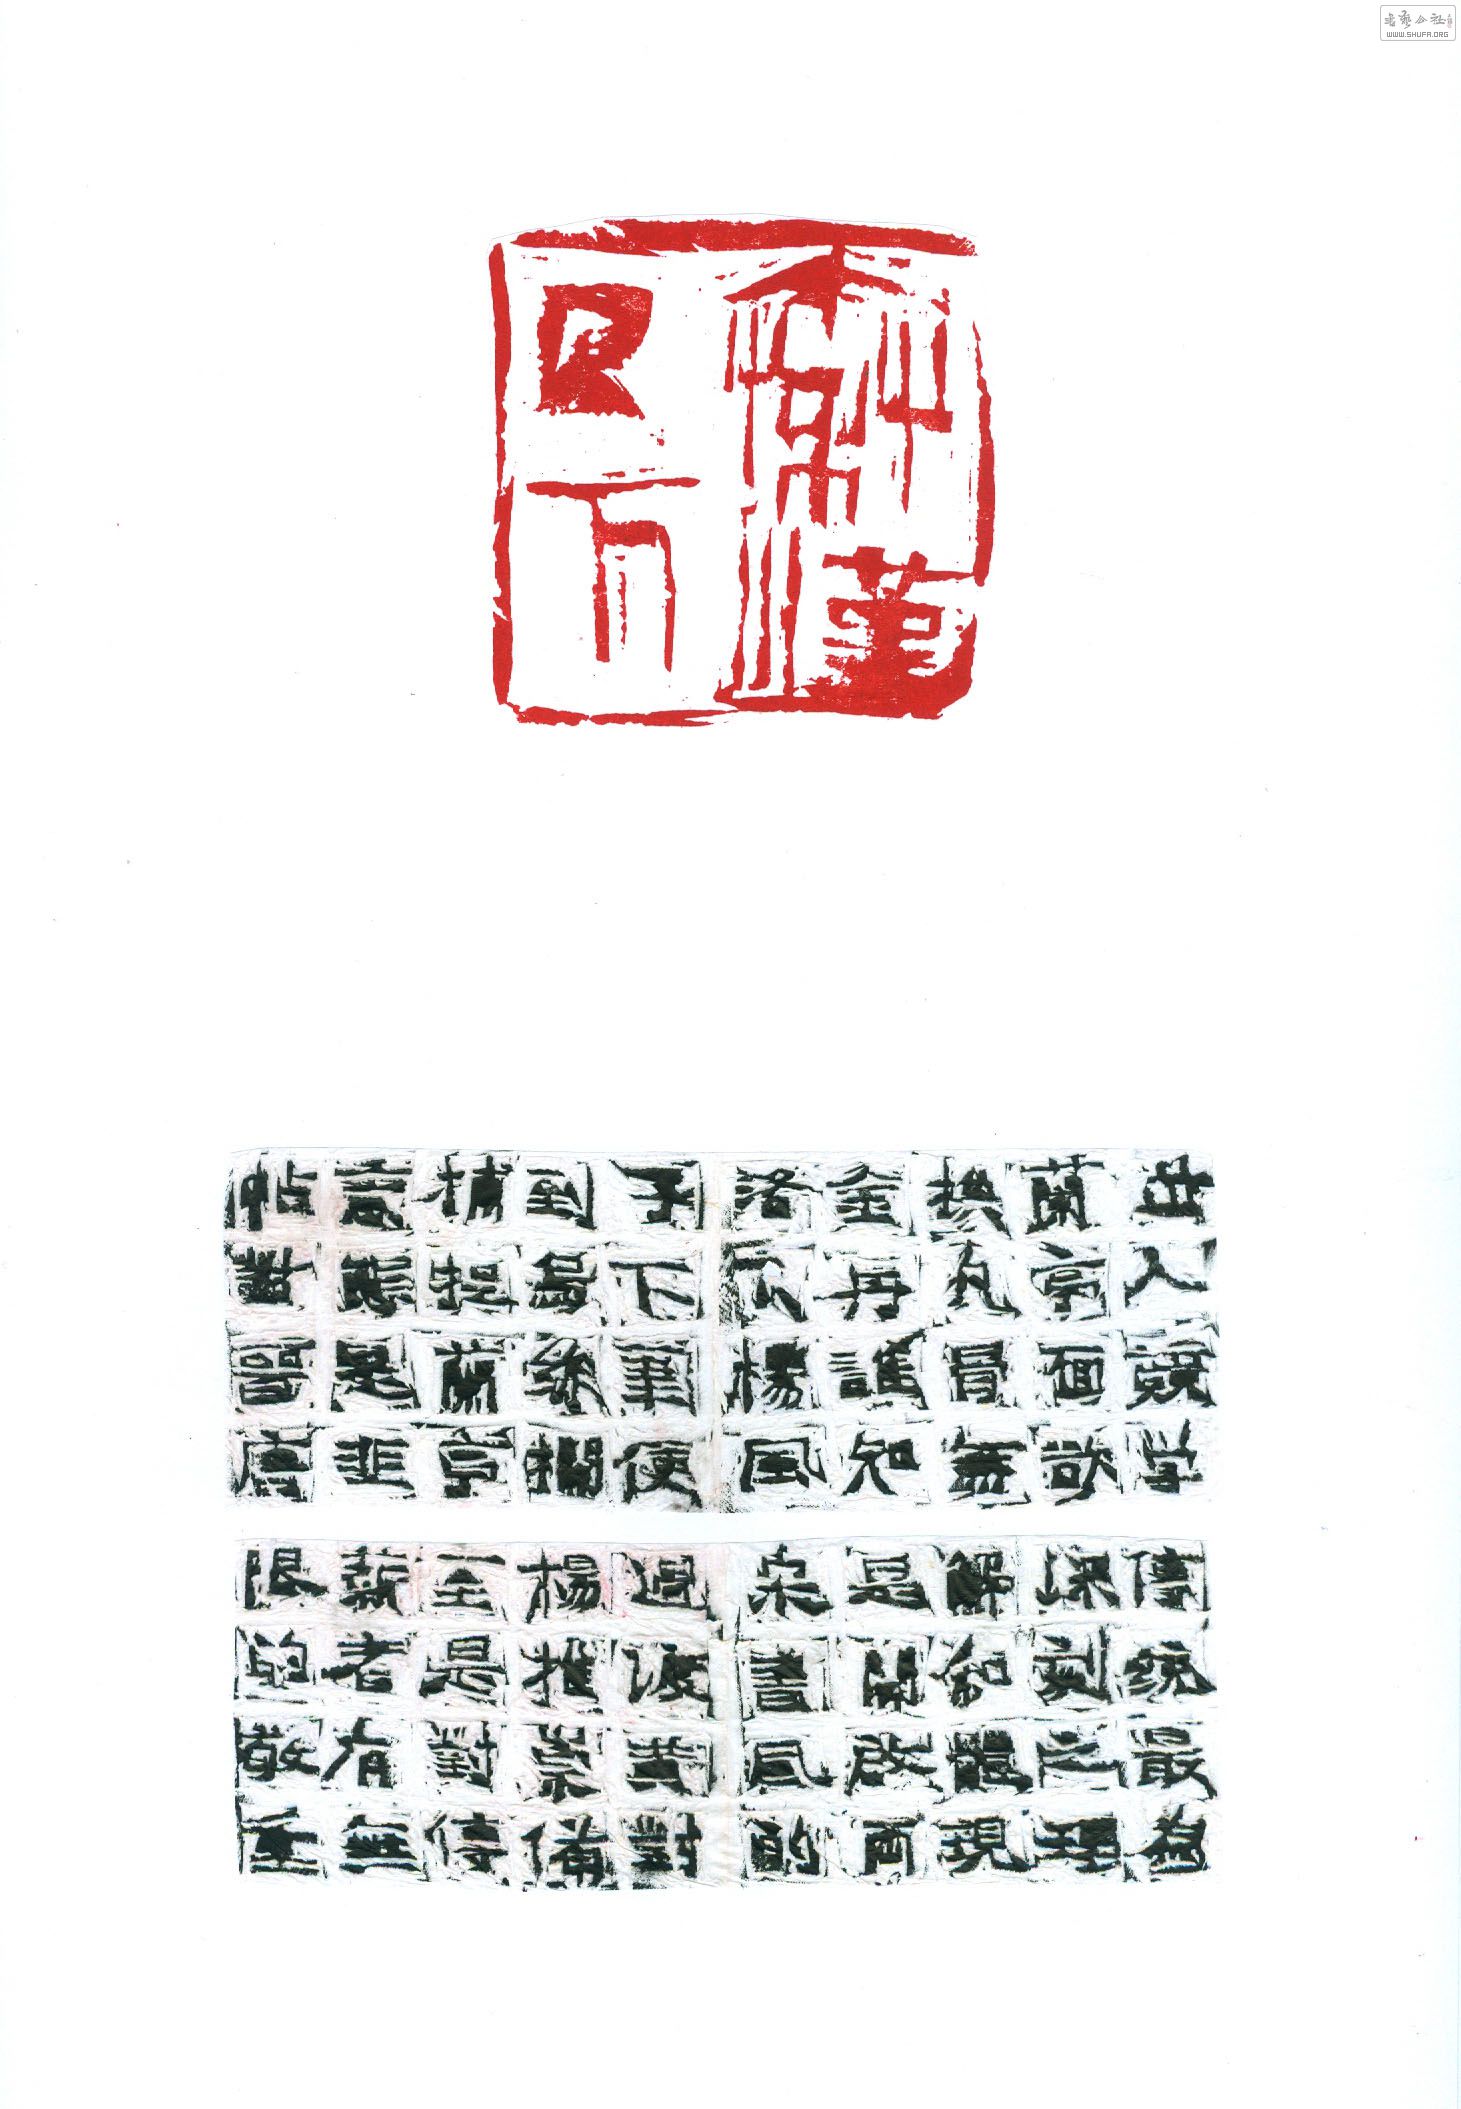 世人競学
蘭亭面欲
換凡骨無
金丹誰知
洛楊風
子下筆便
到烏絲欄
捕捉蘭亭
意態是韭
帖對晉唐
傳統最為
深刻之理
解和體現
是開啟两
宋書風的
過渡黃對
楊推崇備
至是對傳
薪者有無
限的敬重
書藝公社
WWW.SHUFA.ORG